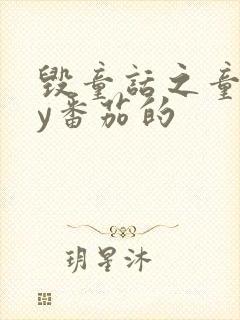 毁童话之童
y番茄的
玥星沐